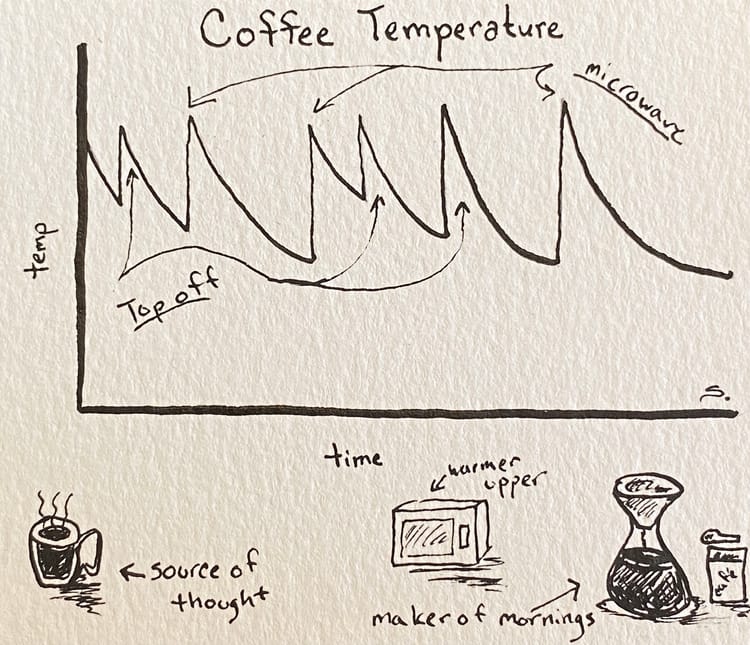 Coffee Temperature
microwave
temp
Top off
S.
time
warmer
upper
source of
thought
maker of mornings